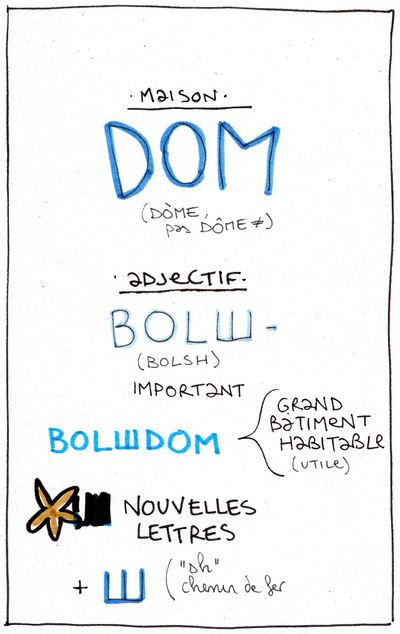 · MAISON ·
DOM
(DÒME,
pas DÔME ≠)
· ADJECTIF ·
BOLШ-
(BOLSH)
IMPORTANT
BOLШDOM
GRAND
BÂTIMENT
HABITABLE
(UTILE)
NOUVELLES
LETTRES
+ Ш
("sh"
chemin de fer